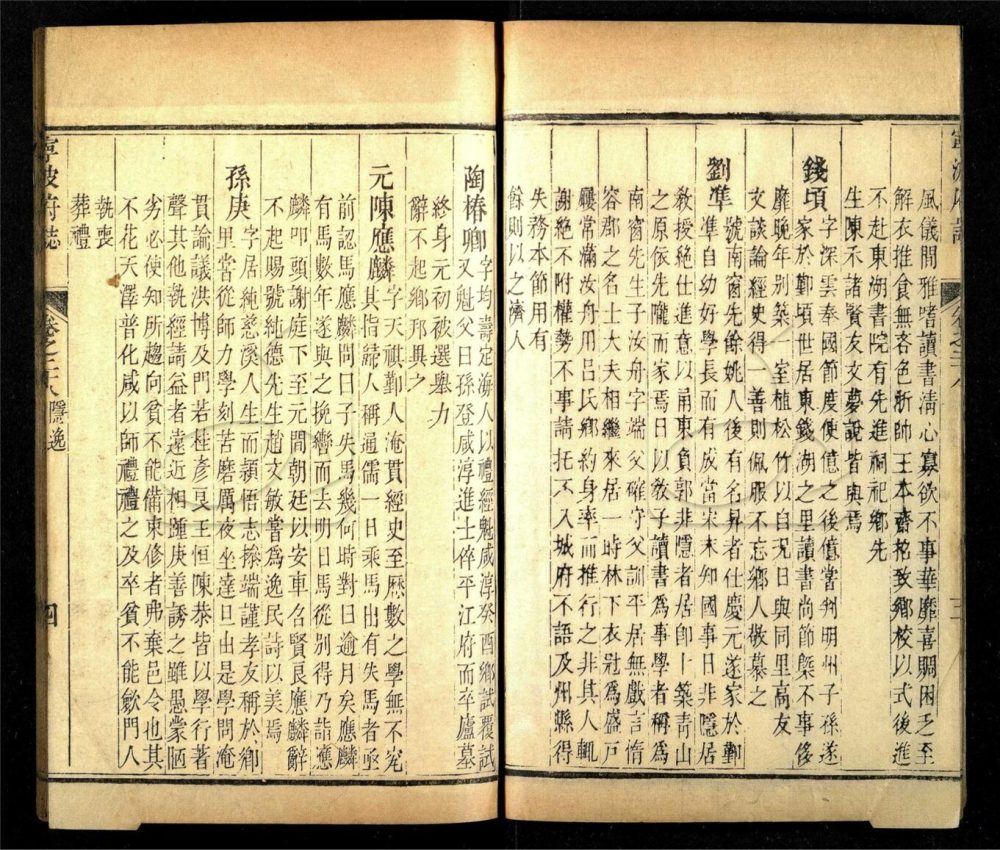 寧波府志
三
風儀閒雅嗜讀書清心寡欲不事華靡喜賙困乏至
解衣推食無吝色析師王本齋招致鄉校以式後進
不赴東湖書院有先進祠祀鄉先
生陳不諸賢友文夢說皆與焉
錢頃字深雲秦國節度使億之後億當刺明州子孫遂
家於鄞頃世居東錢湖之里讀書尚節槩不事侈
靡晚年別築一室植松竹以自况日與同里高友
文談論經史得一善則佩服不忘鄉人敬慕之
劉準號南窗先餘姚人後有名昇者仕慶元遂家於鄞
準自幼好學長而有成當宋末知國事日非隱居
敎授絕仕進意以甬東負郭非隱者居卽卜築青山
之原依先隴而家焉日以敎子讀書爲事學者稱爲
南窗先生子汝舟字端父確守父訓平居無戲言惰
容郡之名士大夫相繼來居一時林下衣冠爲盛戸
屨常滿汝舟用呂氏鄉約身率而推行之非其人輒
謝絕不附權勢不事請托不入城府不語及州縣得
失務本節用有
餘則以之濟人
陶椿卿字均壽定海人以禮經魁咸淳癸酉鄉試覆試
又魁父曰孫登咸淳進士倅平江府而卒廬墓
終身元初被選舉力
辭不起鄉邦異之
元陳應麟字天祺鄞人淹貫經史至曆數之學無不究
其指歸人稱通儒一日乘馬出有失馬者亟
前認馬應麟問曰子失馬幾何時對曰逾月矣應麟
有馬數年遂與之挽轡而去明日馬從別得乃詣應
麟叩頭謝庭下至元間朝廷以安車召賢良應麟辭
不起賜號純德先生趙文敏嘗爲逸民詩以美焉
孫庚字居純慈溪人生而穎悟志操端謹孝友稱於鄉
里嘗從師力學刻苦磨厲夜坐達旦由是學問淹
貫論議洪博及門若桂彥良王恒陳恭皆以學行著
聲其他執經請益者遠近相踵庚善誘之雖愚蒙陋
劣必使知所趨向貧不能備束修者弗棄邑令也其
不花天澤普化咸以師禮禮之及卒貧不能歛門人
執喪
葬禮
寧波府志
卷之二八 隱逸
四